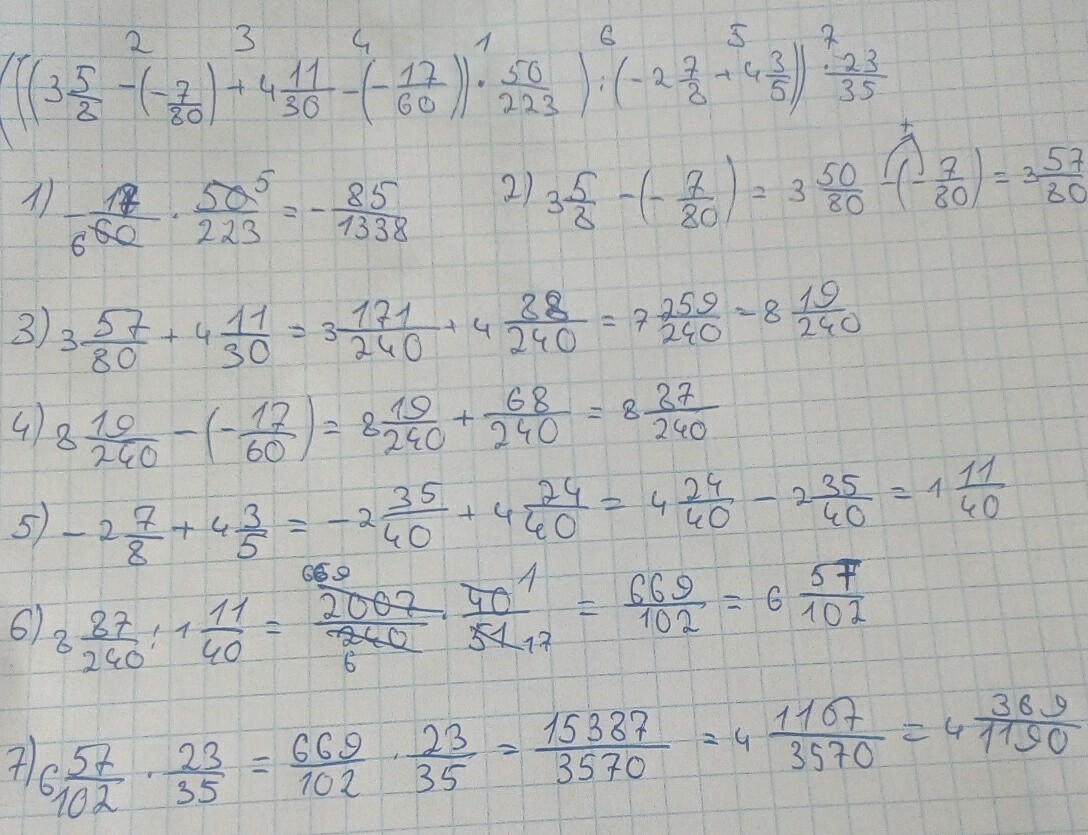 2 3 4 1 6 5 7
(((3 5/8 - (- 7/80) + 4 11/30 - (- 17/60)) · 50/223) : (-2 7/8 + 4 3/5)) · 23/35
1) - 17/60 6 · 50/223 5 = - 85/1338 2) 3 5/8 - (- 7/80) = 3 50/80 - (- 7/80) + = 3 57/80
3) 3 57/80 + 4 11/30 = 3 171/240 + 4 88/240 = 7 259/240 = 8 19/240
4) 8 19/240 - (- 17/60) = 8 19/240 + 68/240 = 8 87/240
5) - 2 7/8 + 4 3/5 = - 2 35/40 + 4 24/40 = 4 24/40 - 2 35/40 = 1 11/40
6) 8 87/240 : 1 11/40 = 669 2007/240 6 · 40/51 1 17 = 669/102 = 6 57/102
7) 6 57/102 · 23/35 = 669/102 · 23/35 = 15387/3570 = 4 1107/3570 = 4 369/1190